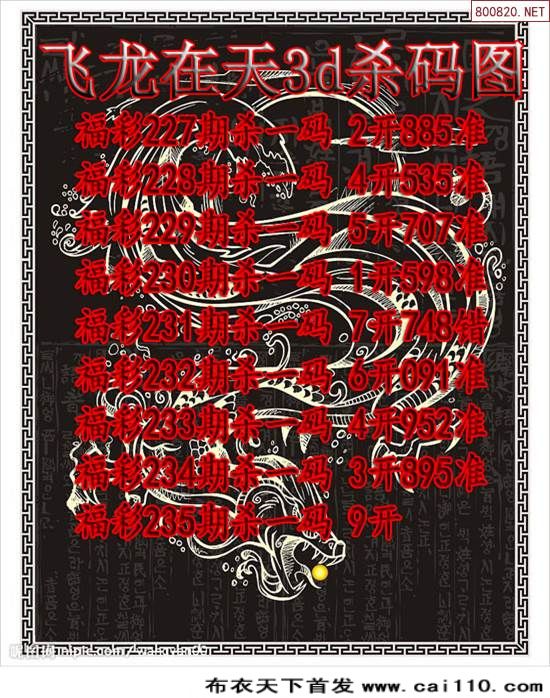 800820.NET
飞龙在天3d杀码图
福彩227期杀一码 2开885准
福彩228期杀一码 4开535准
福彩229期杀一码 5开707准
福彩230期杀一码 1开598准
福彩231期杀一码 7开748错
福彩232期杀一码 6开091准
福彩233期杀一码 4开952准
福彩234期杀一码 3开895准
福彩235期杀一码 9开
布衣天下首发 www.cai110.com